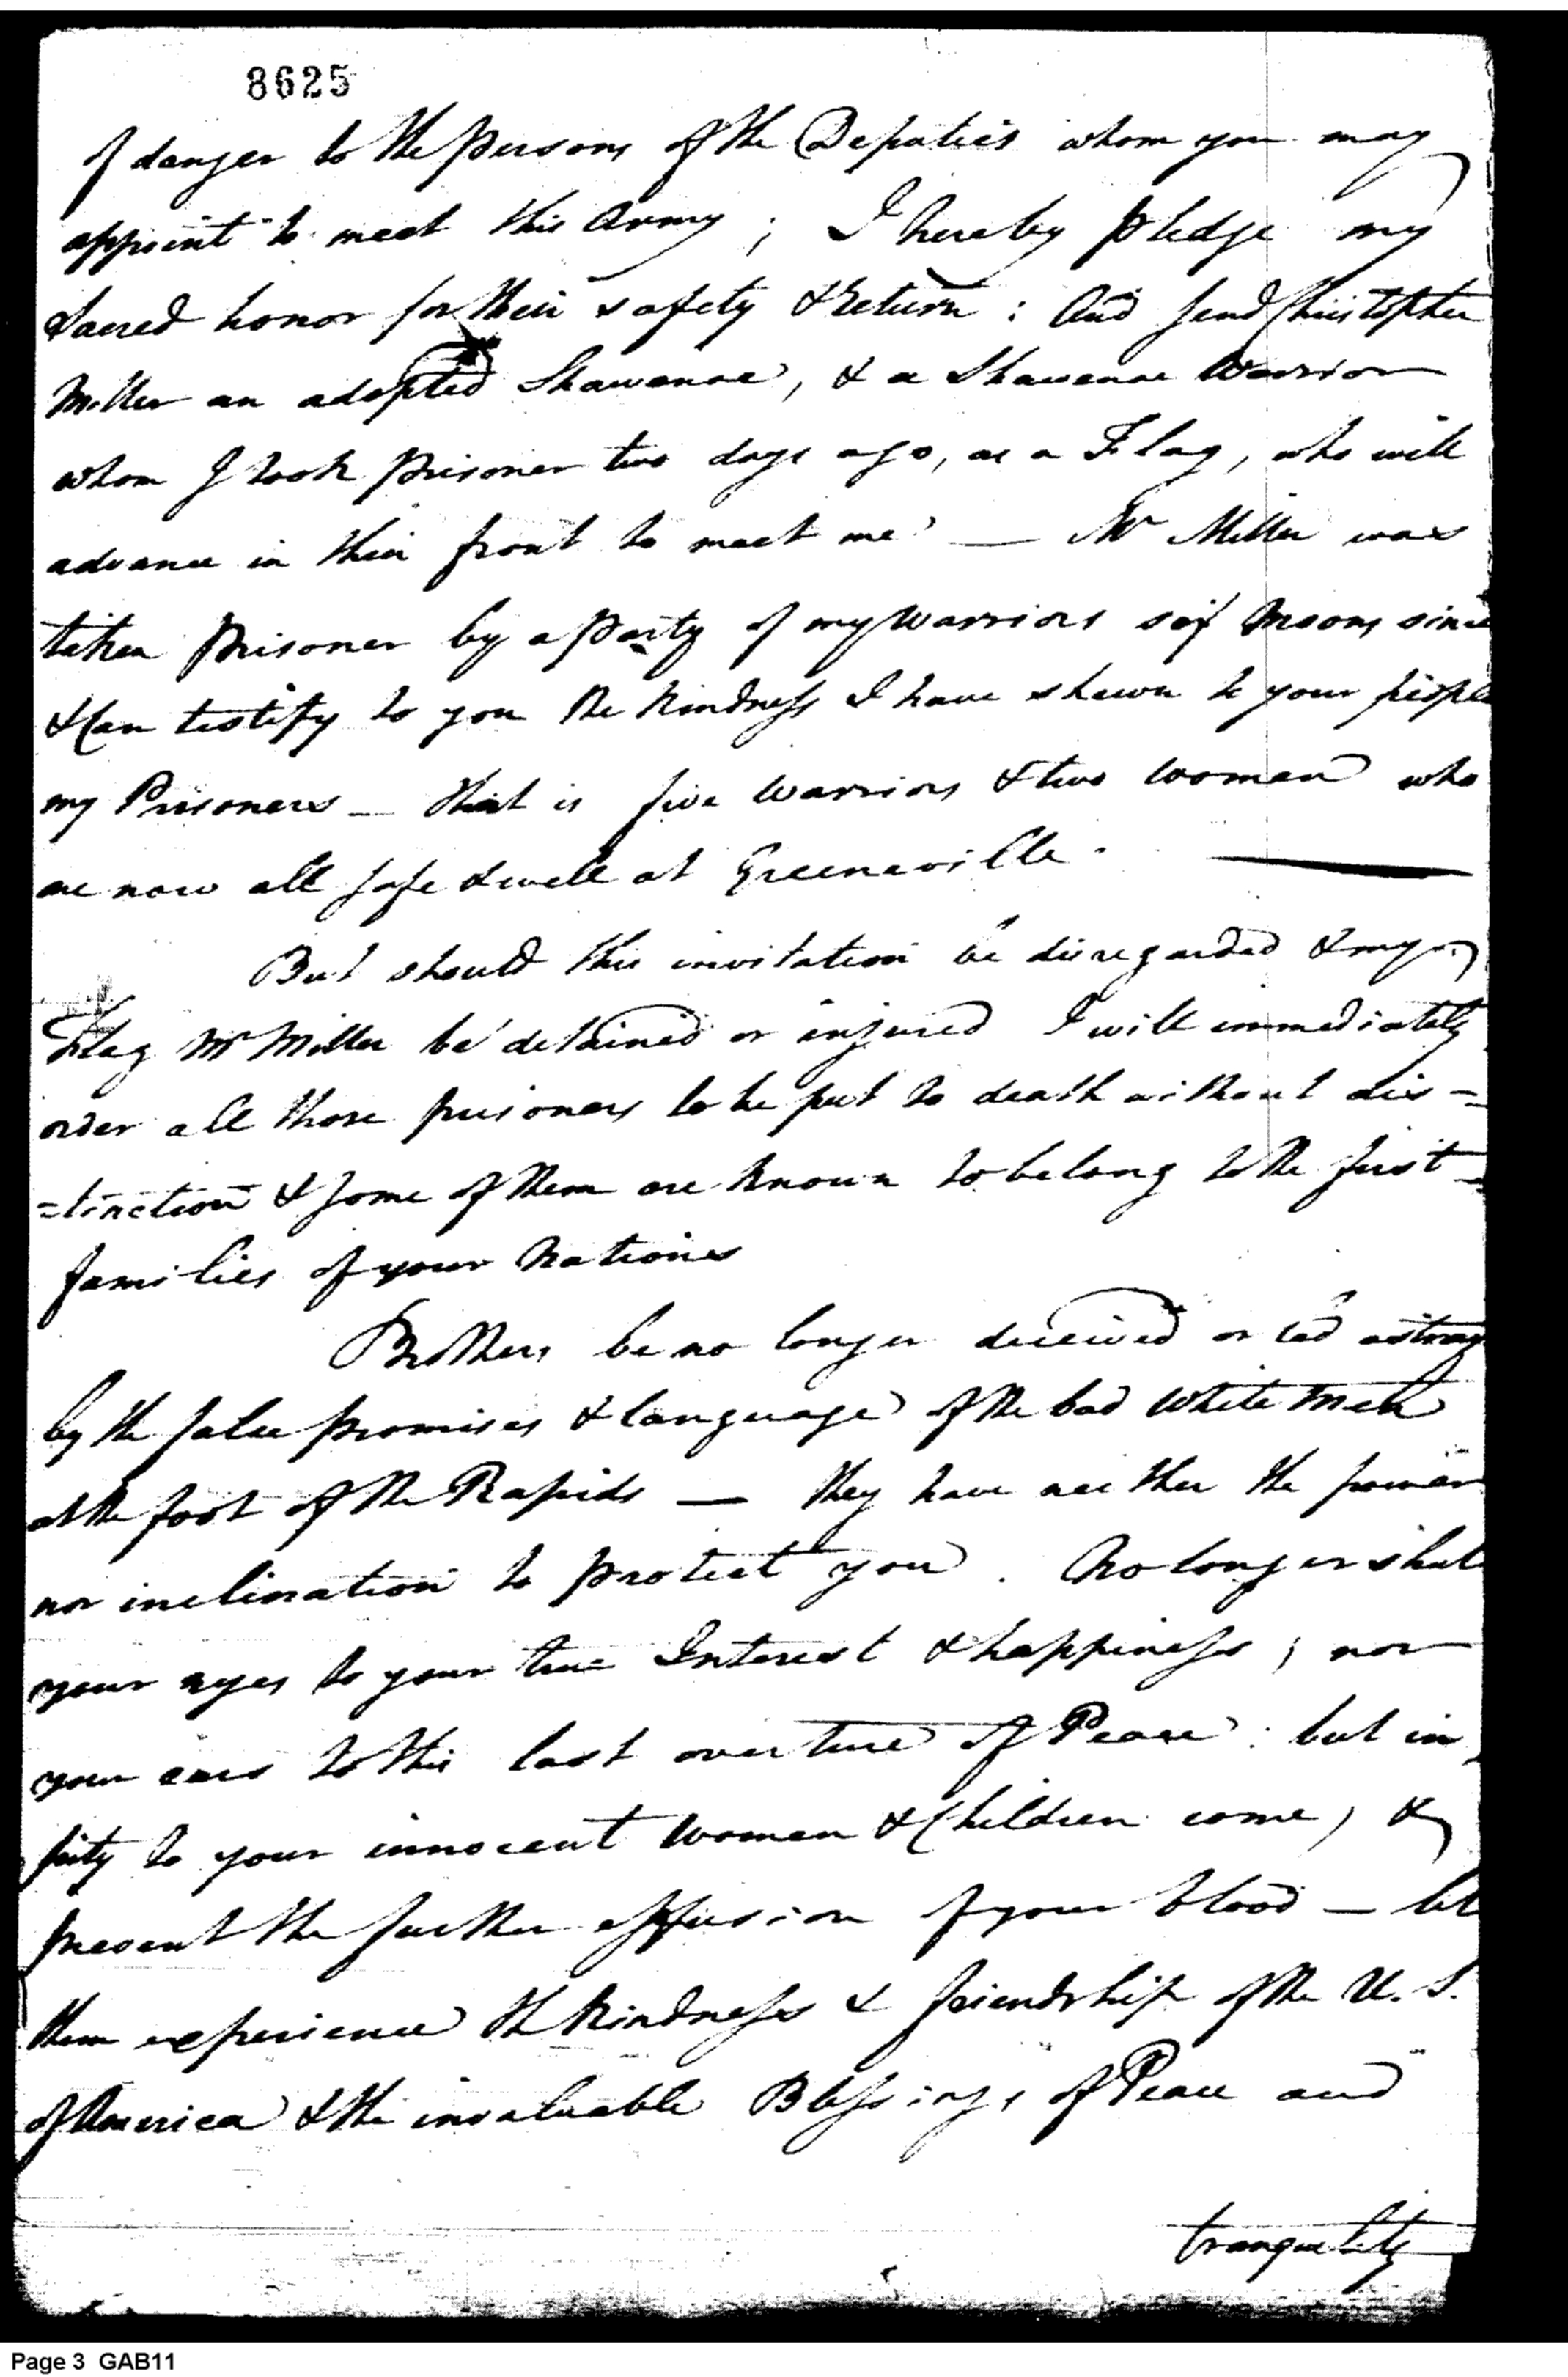 8625
of danger to the persons of the Deputies whom you may
appoint to meet this Army; I hereby pledge my
Sacred honor for their safety & return: And send Christopher
Miller an adopted Shawanoe, & a Shawanoe Warrior
whom I took prisoner two days ago, as a Flag, who will
advance in their front to meet me — Mr Miller was
taken prisoner by a party of my Warriors six Moons since
& Can testify to you the kindness I have shewn to your people
my Prisoners — that is five Warriors & two Women who
are now all safe & well at Greeneville.
But should this invitation be disregarded & my
Flag Mr Miller be detained or injured I will immediately
order all those prisoners to be put to death without dis=
=tinction & some of them are known to belong to the first
families of your Nations
Brothers be no longer deceived or led astray
by the false promises & language of the bad White Men
at the foot of the Rapids — they have neither the power
nor inclination to protect you. No longer shut
your eyes to your true Interest & happiness; nor
your ears to this last overture of Peace: but in
pity to your innocent Women & Children come, &
prevent the further effusion of your blood — let
them experience the kindness & friendship of the U. S.
of America & the invaluable Blessings of Peace and
tranquility
Page 3 GAB11